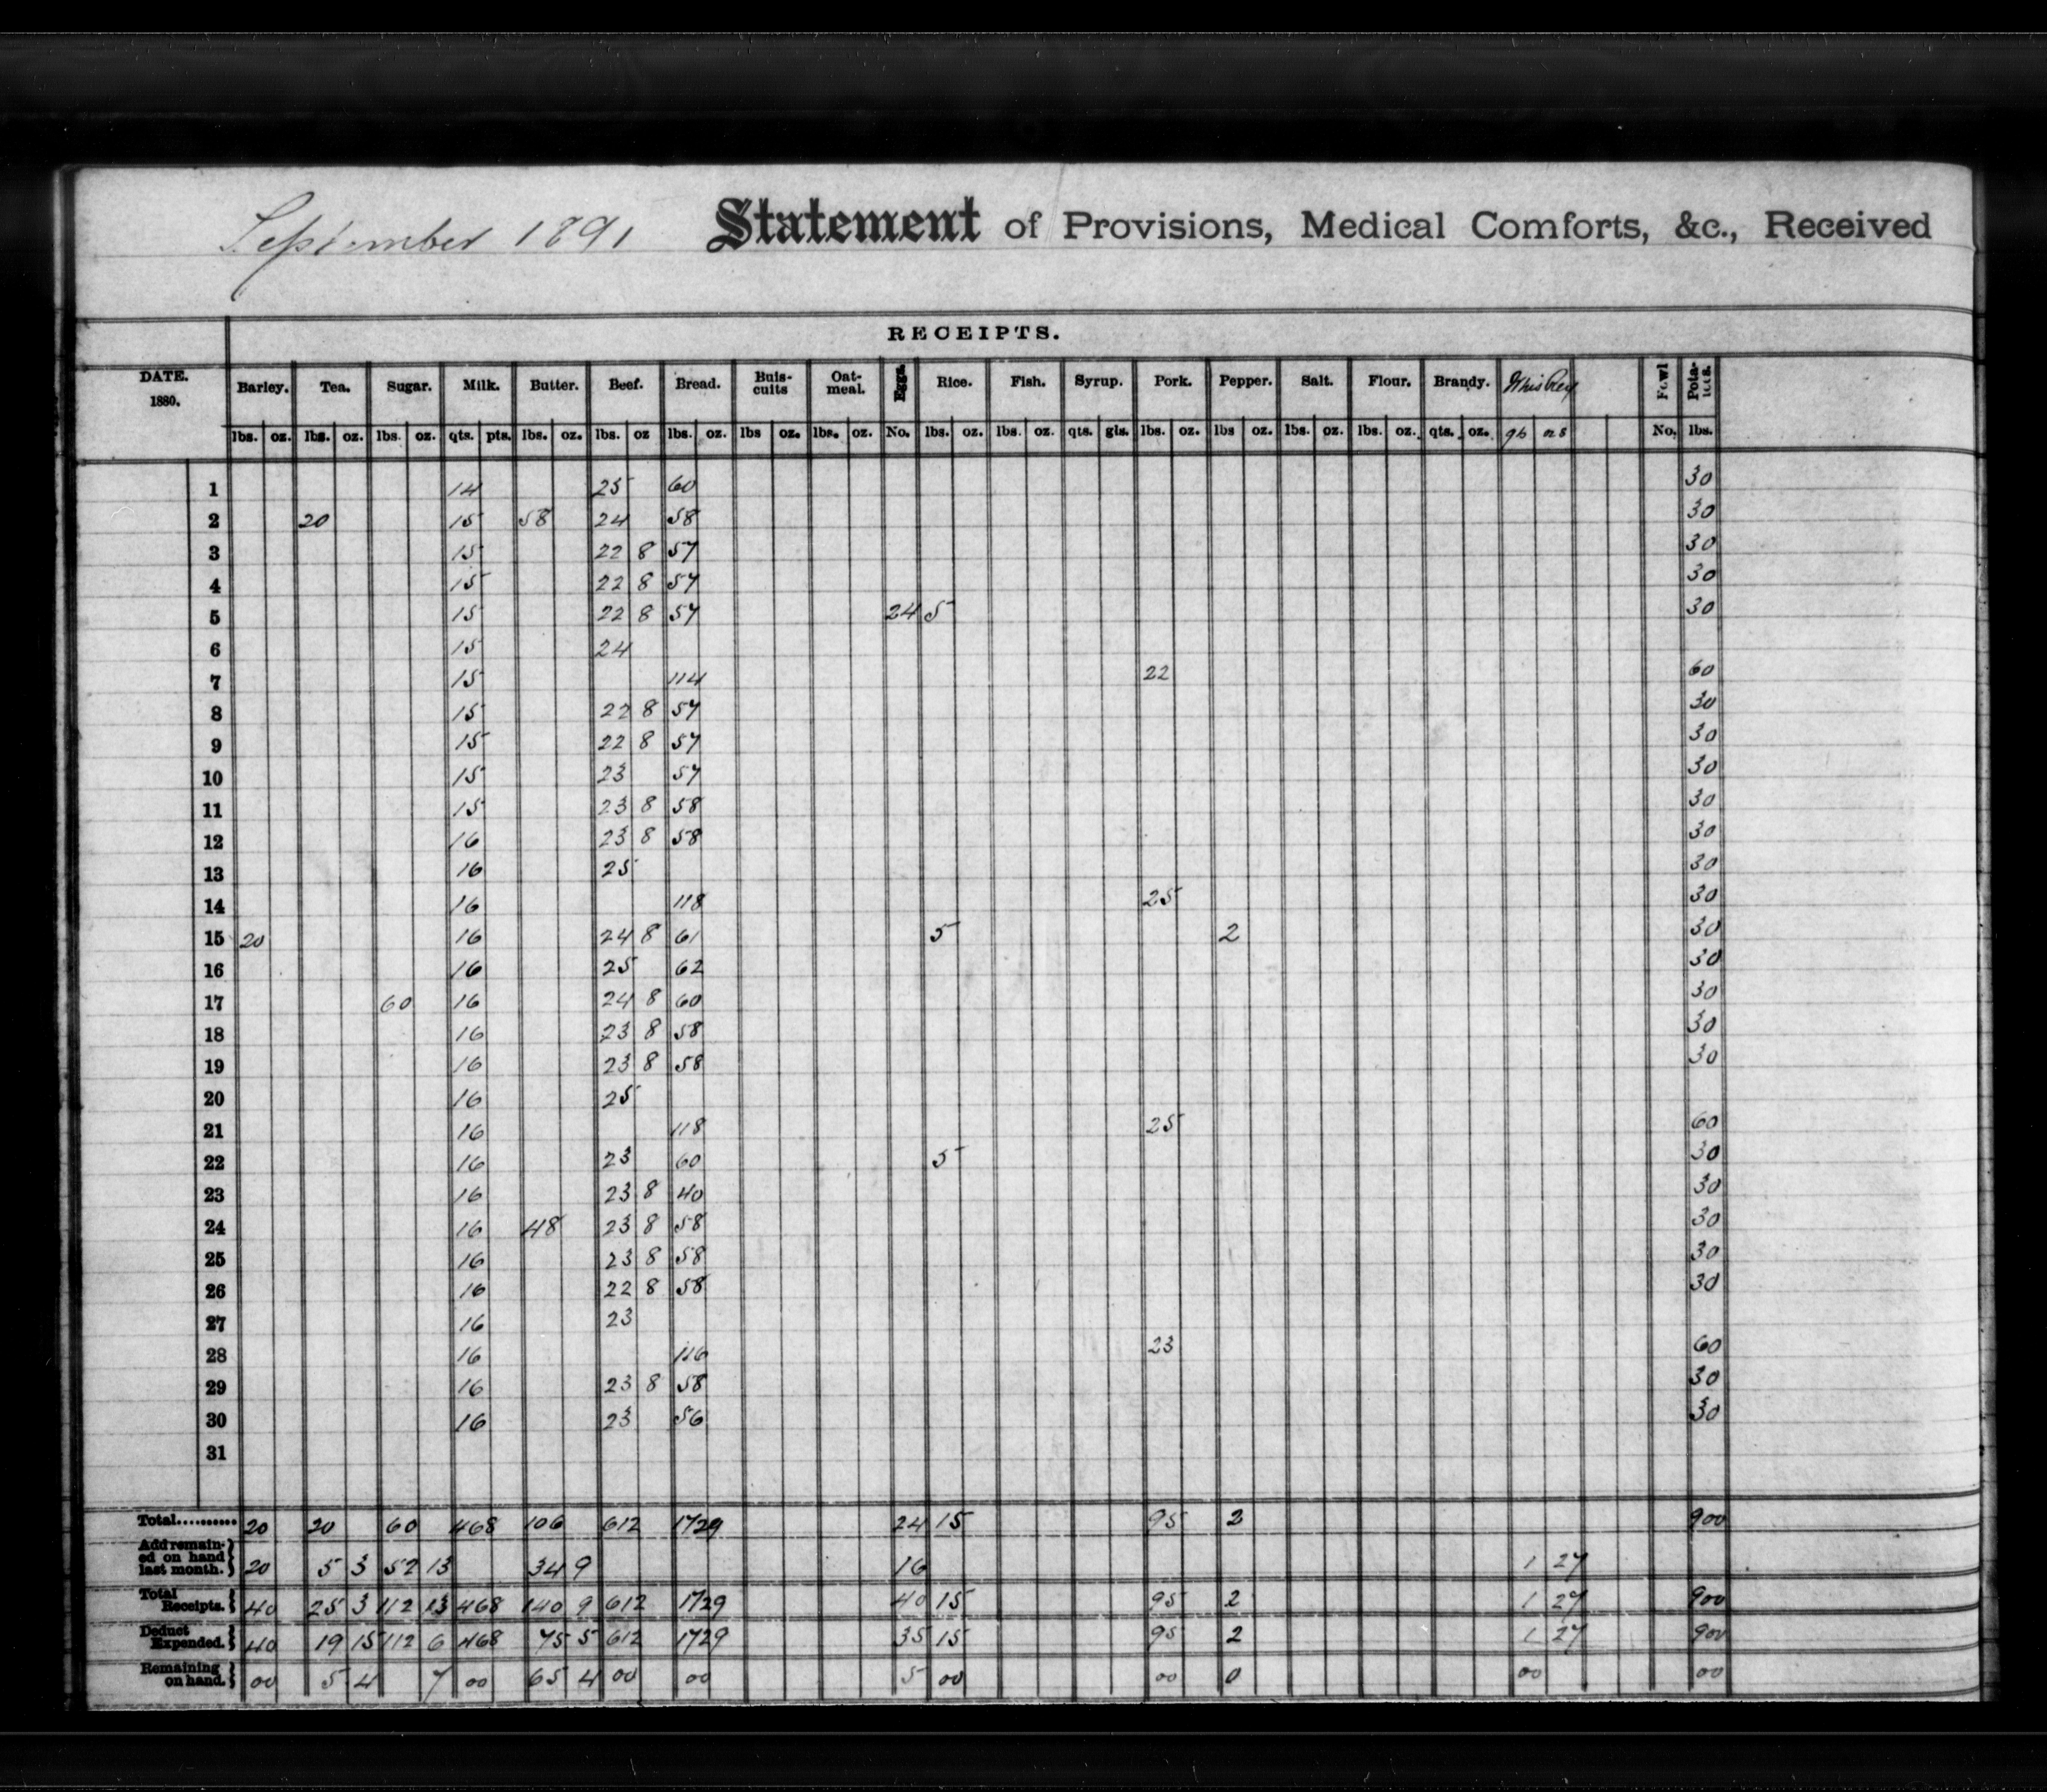 September 1891 Statement of Provisions, Medical Comforts, &c., Received
RECEIPTS.
DATE. 1880. Barley. Tea. Sugar. Milk. Butter. Beef. Bread. Buis-cuits Oat-meal. Eggs. Rice. Fish. Syrup. Pork. Pepper. Salt. Flour. Brandy. Whiskey Fowl Pota-toes.
lbs. oz. lbs. oz. lbs. oz. qts. pts. lbs. oz. lbs. oz lbs. oz. lbs oz. lbs. oz. No. lbs. oz. lbs. oz. qts. gls. lbs. oz. lbs oz. lbs. oz. lbs. oz. qts. oz. No. lbs.
1 14 25 60 30
2 20 15 58 24 58 30
3 15 22 8 57 30
4 15 22 8 57 30
5 15 22 8 57 24 5 30
6 15 24
7 15 114 22 60
8 15 22 8 57 30
9 15 22 8 57 30
10 15 23 57 30
11 15 23 8 58 30
12 16 23 8 58 30
13 16 25 30
14 16 118 25 30
15 20 16 24 8 61 5 2 30
16 16 25 62 30
17 60 16 24 8 60 30
18 16 23 8 58 30
19 16 23 8 58 30
20 16 25
21 16 118 25 60
22 16 23 60 5 30
23 16 23 8 40 30
24 16 48 23 8 58 30
25 16 23 8 58 30
26 16 22 8 58 30
27 16 23
28 16 116 23 60
29 16 23 8 58 30
30 16 23 56 30
31
Total.......... 20 20 60 468 106 612 1729 24 15 95 2 900
Add remain-ed on hand last month. 20 5 3 52 13 34 9 16 1 27
Total Receipts. 40 25 3 112 13 468 140 9 612 1729 40 15 95 2 1 27 900
Deduct Expended. 40 19 15 112 6 468 75 5 612 1729 35 15 95 2 1 27 900
Remaining on hand. 00 5 4 7 00 65 4 00 00 5 00 00 0 00 00